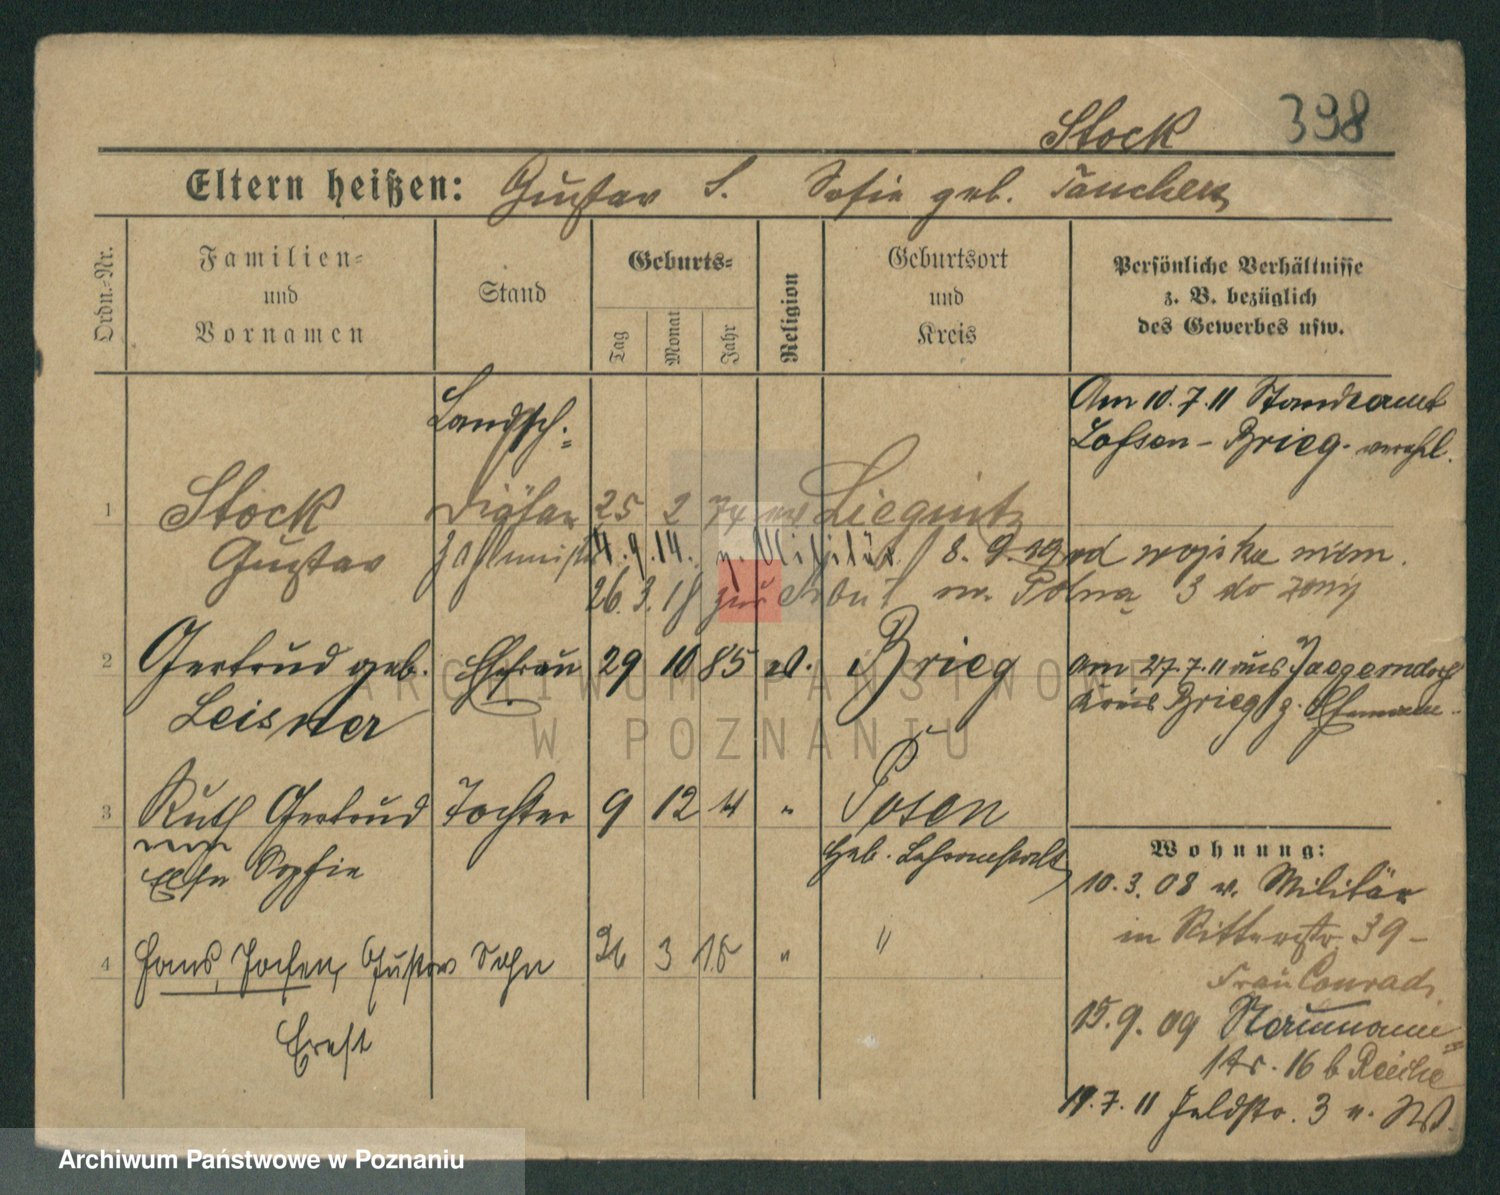 398
Stock
Eltern heißen: Gustav S. Sofie geb.
Ordn.-Nr.
Familien-
und
Vornamen
Stand
Geburts-
Tag
Monat
Jahr
Religion
Geburtsort
und
Kreis
Persönliche Verhältnisse
z. B. bezüglich
des Gewerbes usw.
Am 10.7.11 Standesamt
Lossen - Brieg. verehl.
Landsch.=
1 Stock Diätar 25 2 74 ev Liegnitz
Gustav 4.9.14. z. Militär 8. 9. 19 od wojska niem.
26.3.18 zur na Polną 3 do żony
2 Gertrud geb. Ehefrau 29 10 85 ev. Brieg
Leisner
Am 27.7.11 aus Jaegerndorf
Kreis Brieg z. Ehemann.
3 Ruth Gertrud Tochter 9 12 14 " Posen
Else Sophie
Heb. Lehranstalt
4 Hans, Jochen, Gustav Sohn 26 3 18 " "
Ernst
Wohnung:
10.3.08 v. Militär
in Ritterstr. 39 -
Frau Conrad,
15.9.09 Naumann=
str. 16 b Reiche
19.7.11 Feldstr. 3 n. W.
ARCHIWUM PAŃSTWOWE
W POZNANIU
Archiwum Państwowe w Poznaniu